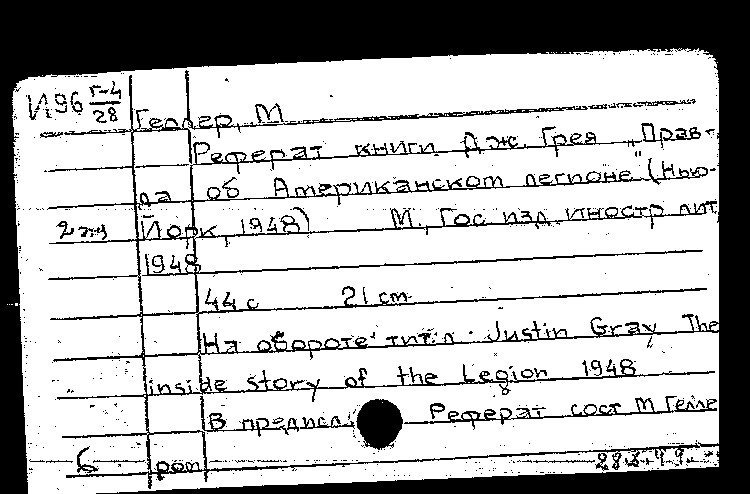 И96 Г-4/28
Геллер, М
Реферат книги Дж. Грея „Прав-
да об Американском легионе" (Нью-
2 эк Йорк, 1948) М., Гос изд иностр лит,
1948
44 с 21 cm
На обороте титл: Justin Gray The
inside story of the Legion 1948
В предисл.: Реферат сост М Гелле
Б ром
28.3.49